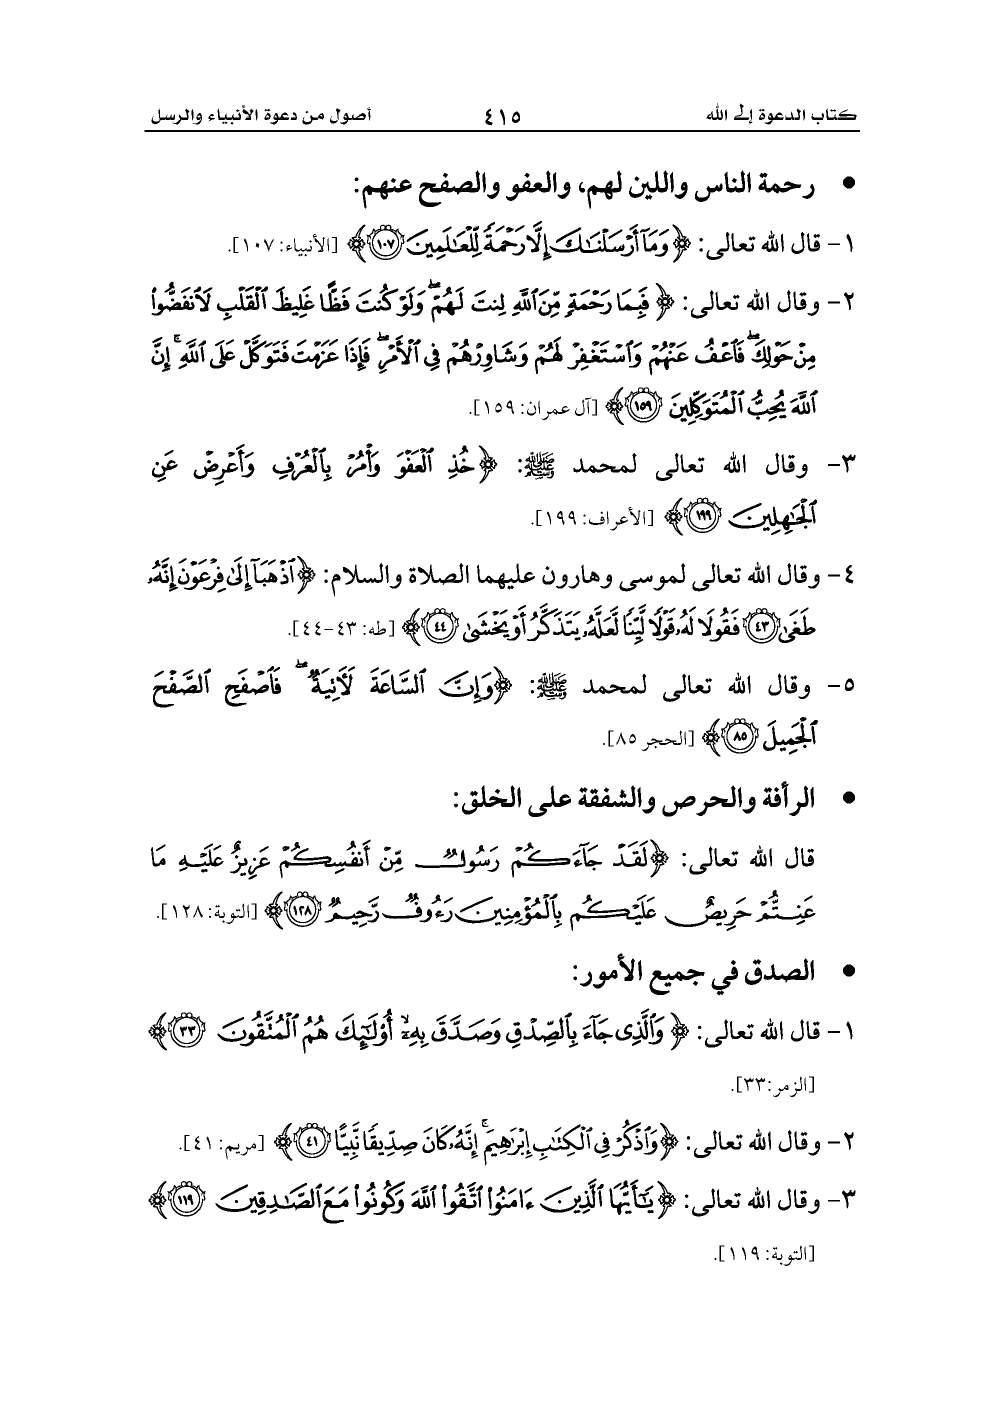 كتاب الدعوة إلى الله ٤١٥ أصول من دعوة الأنبياء والرسل
• رحمة الناس واللين لهم، والعفو والصفح عنهم:
١- قال الله تعالى: ﴿وَمَآ أَرْسَلْنَٰكَ إِلَّا رَحْمَةً لِّلْعَٰلَمِينَ ١٠٧﴾ [الأنبياء: ١٠٧].
٢- وقال الله تعالى: ﴿فَبِمَا رَحْمَةٍ مِّنَ ٱللَّهِ لِنتَ لَهُمْ ۖ وَلَوْ كُنتَ فَظًّا غَلِيظَ ٱلْقَلْبِ لَٱنفَضُّوا۟
مِنْ حَوْلِكَ ۖ فَٱعْفُ عَنْهُمْ وَٱسْتَغْفِرْ لَهُمْ وَشَاوِرْهُمْ فِى ٱلْأَمْرِ ۖ فَإِذَا عَزَمْتَ فَتَوَكَّلْ عَلَى ٱللَّهِ ۚ إِنَّ
ٱللَّهَ يُحِبُّ ٱلْمُتَوَكِّلِينَ ١٥٩﴾ [آل عمران: ١٥٩].
٣- وقال الله تعالى لمحمد ﷺ: ﴿خُذِ ٱلْعَفْوَ وَأْمُرْ بِٱلْعُرْفِ وَأَعْرِضْ عَنِ
ٱلْجَٰهِلِينَ ١٩٩﴾ [الأعراف: ١٩٩].
٤- وقال الله تعالى لموسى وهارون عليهما الصلاة والسلام: ﴿ٱذْهَبَآ إِلَىٰ فِرْعَوْنَ إِنَّهُۥ
طَغَىٰ ٤٣ فَقُولَا لَهُۥ قَوْلًا لَّيِّنًا لَّعَلَّهُۥ يَتَذَكَّرُ أَوْ يَخْشَىٰ ٤٤﴾ [طه: ٤٣-٤٤].
٥- وقال الله تعالى لمحمد ﷺ: ﴿وَإِنَّ ٱلسَّاعَةَ لَءَاتِيَةٌ ۖ فَٱصْفَحِ ٱلصَّفْحَ
ٱلْجَمِيلَ ٨٥﴾ [الحجر ٨٥].
• الرأفة والحرص والشفقة على الخلق:
قال الله تعالى: ﴿لَقَدْ جَآءَكُمْ رَسُولٌ مِّنْ أَنفُسِكُمْ عَزِيزٌ عَلَيْهِ مَا
عَنِتُّمْ حَرِيصٌ عَلَيْكُم بِٱلْمُؤْمِنِينَ رَءُوفٌ رَّحِيمٌ ١٢٨﴾ [التوبة: ١٢٨].
• الصدق في جميع الأمور:
١- قال الله تعالى: ﴿وَٱلَّذِى جَآءَ بِٱلصِّدْقِ وَصَدَّقَ بِهِۦٓ ۙ أُو۟لَٰٓئِكَ هُمُ ٱلْمُتَّقُونَ ٣٣﴾
[الزمر:٣٣].
٢- وقال الله تعالى: ﴿وَٱذْكُرْ فِى ٱلْكِتَٰبِ إِبْرَٰهِيمَ ۚ إِنَّهُۥ كَانَ صِدِّيقًا نَّبِيًّا ٤١﴾ [مريم: ٤١].
٣- وقال الله تعالى: ﴿يَٰٓأَيُّهَا ٱلَّذِينَ ءَامَنُوا۟ ٱتَّقُوا۟ ٱللَّهَ وَكُونُوا۟ مَعَ ٱلصَّٰدِقِينَ ١١٩﴾
[التوبة: ١١٩].